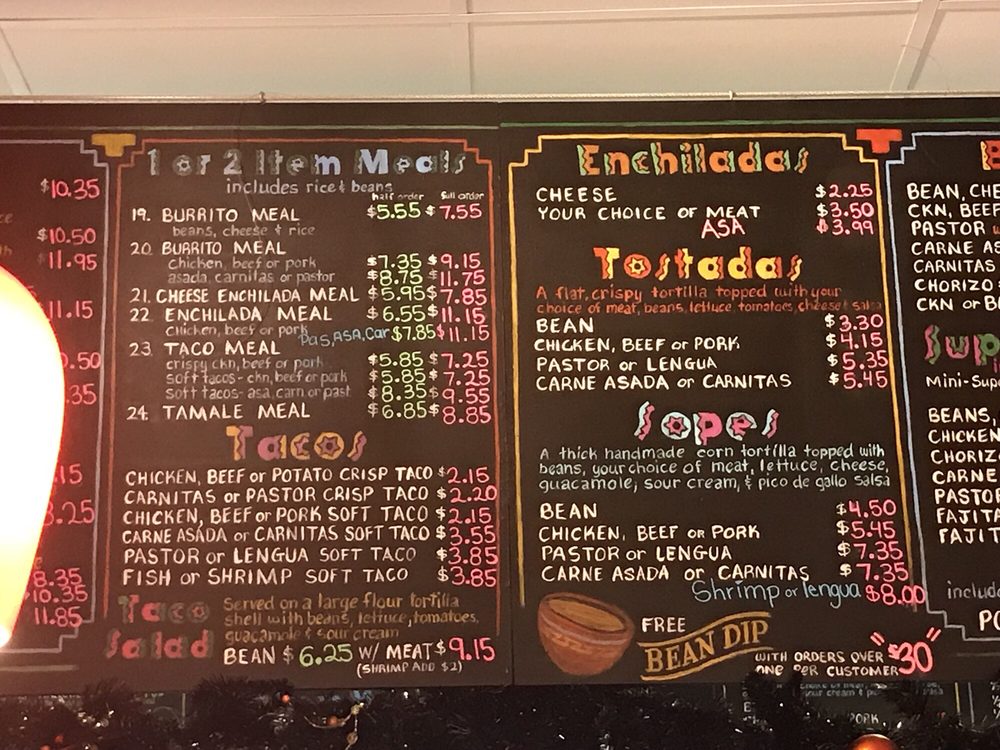 $10.35
$10.50
$11.95
11.15
.50
.35
.15
3.25
8.35
10.35
11.85
1 or 2 Item Meals
includes rice & beans
half order full order
19. BURRITO MEAL $5.55 $7.55
beans, cheese & rice
20. BURRITO MEAL
Chicken, beef or pork $7.35 $9.15
asada, carnitas or pastor $8.75 $11.75
21. CHEESE ENCHILADA MEAL $5.95 $7.85
22. ENCHILADA MEAL $6.55 $11.15
Chicken, beef or pork Pas, ASA, Car $7.85 $11.15
23. TACO MEAL
crispy ckn, beef or pork $5.85 $7.25
soft tacos - ckn, beef or pork $5.85 $7.25
soft tacos - asa, carn or past $8.35 $9.55
24. TAMALE MEAL $6.85 $8.85
Tacos
CHICKEN, BEEF or POTATO CRISP TACO $2.15
CARNITAS or PASTOR CRISP TACO $2.20
CHICKEN, BEEF or PORK SOFT TACO $2.15
CARNE ASADA or CARNITAS SOFT TACO $3.55
PASTOR or LENGUA SOFT TACO $3.85
FISH or SHRIMP SOFT TACO $3.85
Taco Salad
Served on a large flour tortilla
shell with beans, lettuce, tomatoes,
guacamole & sour cream
BEAN $6.25 W/ MEAT $9.15
(SHRIMP ADD $2)
Enchiladas
CHEESE $2.25
YOUR CHOICE OF MEAT $3.50
ASA $3.99
Tostadas
A flat, crispy tortilla topped with your
choice of meat, beans, lettuce, tomatoes, cheese & salsa
BEAN $3.30
CHICKEN, BEEF or PORK $4.15
PASTOR or LENGUA $5.35
CARNE ASADA or CARNITAS $5.45
Sopes
A thick handmade corn tortilla topped with
beans, your choice of meat, lettuce, cheese,
guacamole, sour cream, & pico de gallo salsa
BEAN $4.50
CHICKEN, BEEF or PORK $5.45
PASTOR or LENGUA $7.35
CARNE ASADA or CARNITAS $7.35
Shrimp or lengua $8.00
FREE
BEAN DIP
WITH ORDERS OVER "$30"
ONE PER CUSTOMER
BEAN, CHE
CKN, BEEF
PASTOR
CARNE AS
CARNITAS
CHORIZO
CKN or B
Sup
Mini-Sup
BEANS,
CHICKEN
CHORIZ
CARNE
PASTO
FAJITA
FAJIT
includ
PO